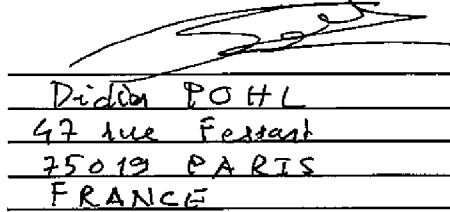 Didier POHL
47 rue Fessart
75019 PARIS
FRANCE